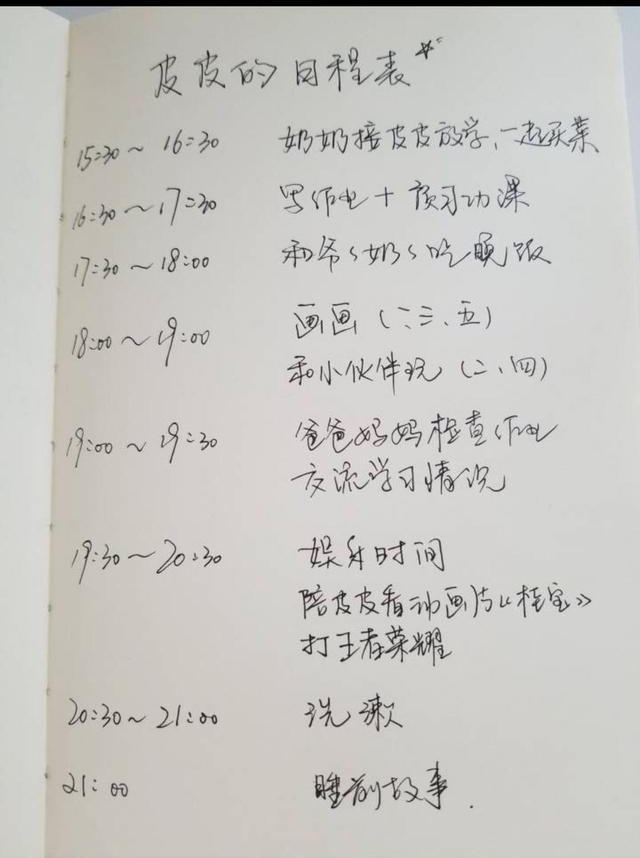 皮皮的日程表
15:30~16:30 奶奶接皮皮放学,一起买菜
16:30~17:30 写作业+预习功课
17:30~18:00 和爷々奶々吃晚饭
18:00~19:00 画画(一、三、五)
和小伙伴玩(二、四)
19:00~19:30 爸爸妈妈检查作业
交流学习情况
19:30~20:30 娱乐时间
陪皮皮看动画片《桂宝》
打王者荣耀
20:30~21:00 洗漱
21:00 睡前故事.